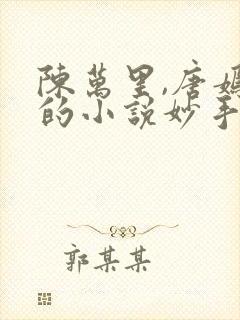 陳萬里,唐嫣
的小說妙手
郭某某